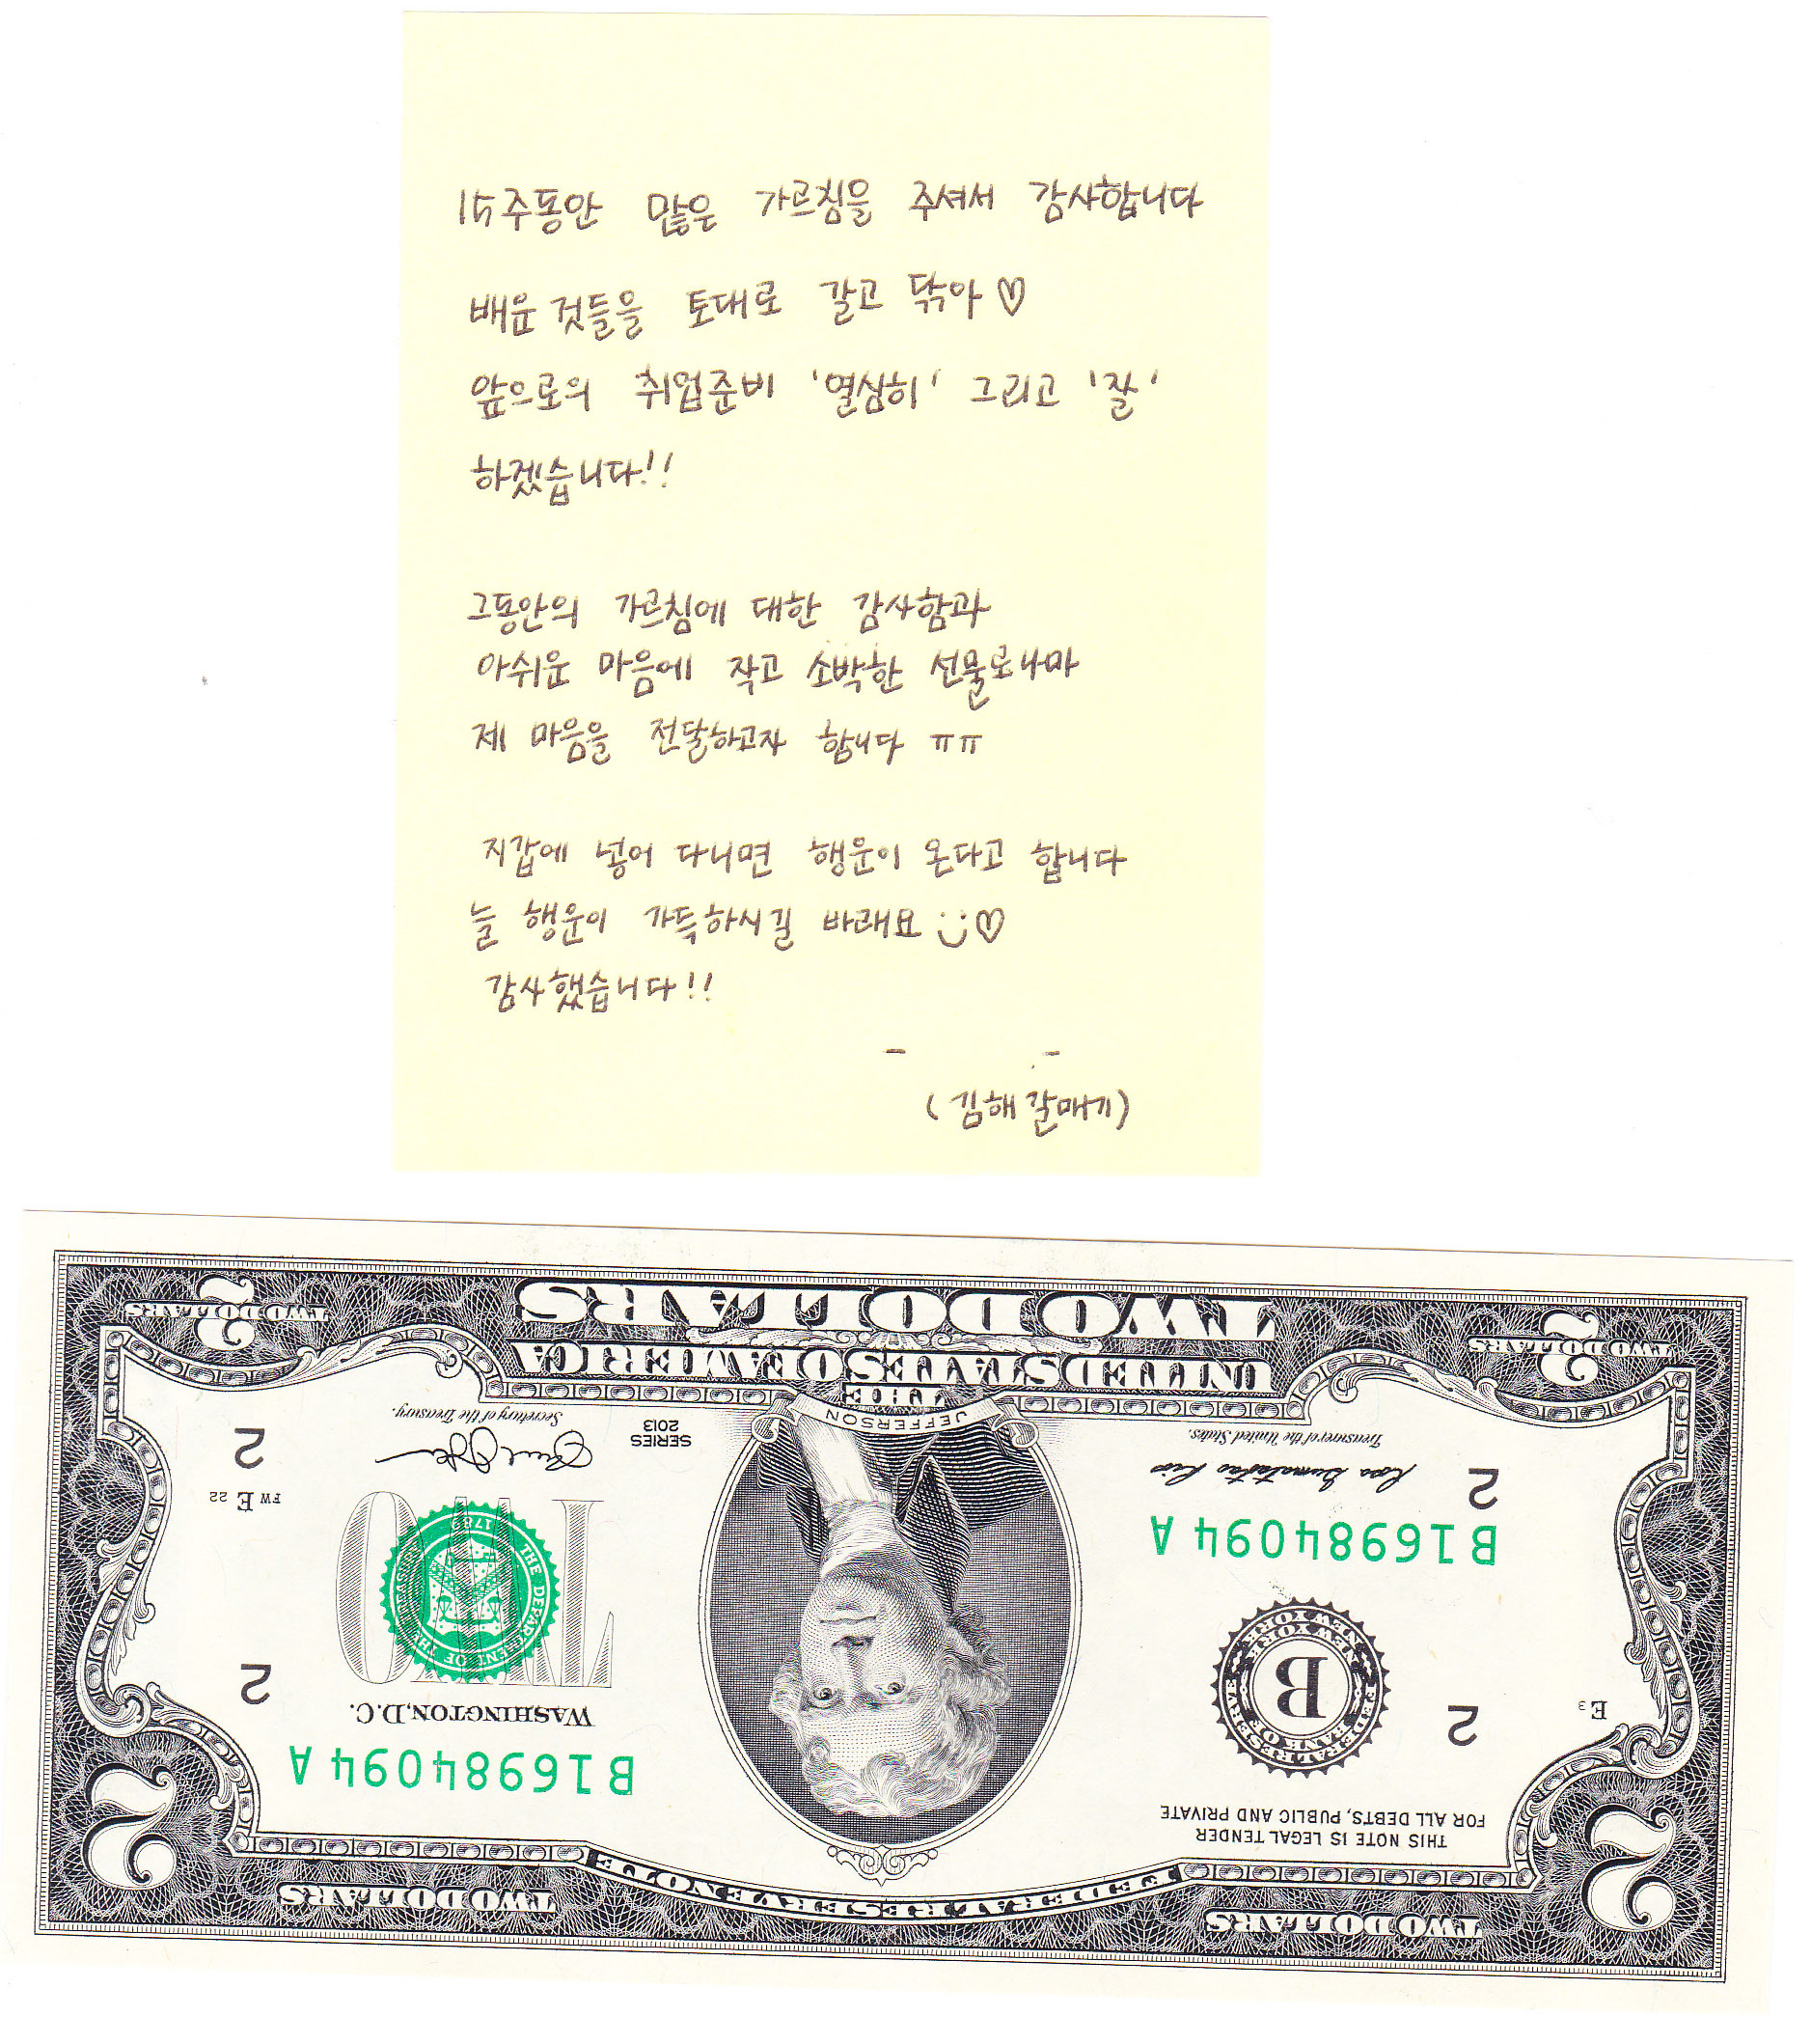 15주동안 많은 가르침을 주셔서 감사합니다
배운 것들을 토대로 갈고 닦아♡
앞으로의 취업준비 '열심히' 그리고 '잘'
하겠습니다!!
그동안의 가르침에 대한 감사함과
아쉬운 마음에 작고 소박한 선물로나마
제 마음을 전달하고자 합니다 ㅠㅠ
지갑에 넣어 다니면 행운이 온다고 합니다
늘 행운이 가득하시길 바래요 :)♡
감사했습니다!!
- -
(김해 갈매기)
FEDERAL RESERVE NOTE
TWO DOLLARS
TWO DOLLARS
2
2
THIS NOTE IS LEGAL TENDER
FOR ALL DEBTS, PUBLIC AND PRIVATE
B16984094A
E3
2
FEDERAL RESERVE BANK OF NEW YORK NEW YORK
B
WASHINGTON, D.C.
2
TWO
THE DEPARTMENT OF THE TREASURY
1789
B16984094A
2
Rosa Gumataotao Rios
Treasurer of the United States.
SERIES
2013
Secretary of the Treasury.
FW E 22
2
JEFFERSON
THE
UNITED STATES OF AMERICA
TWO DOLLARS
2
TWO DOLLARS
2
TWO DOLLARS